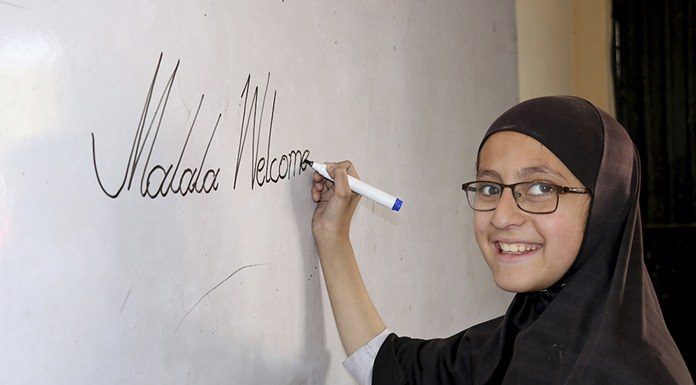 Malala Welcome